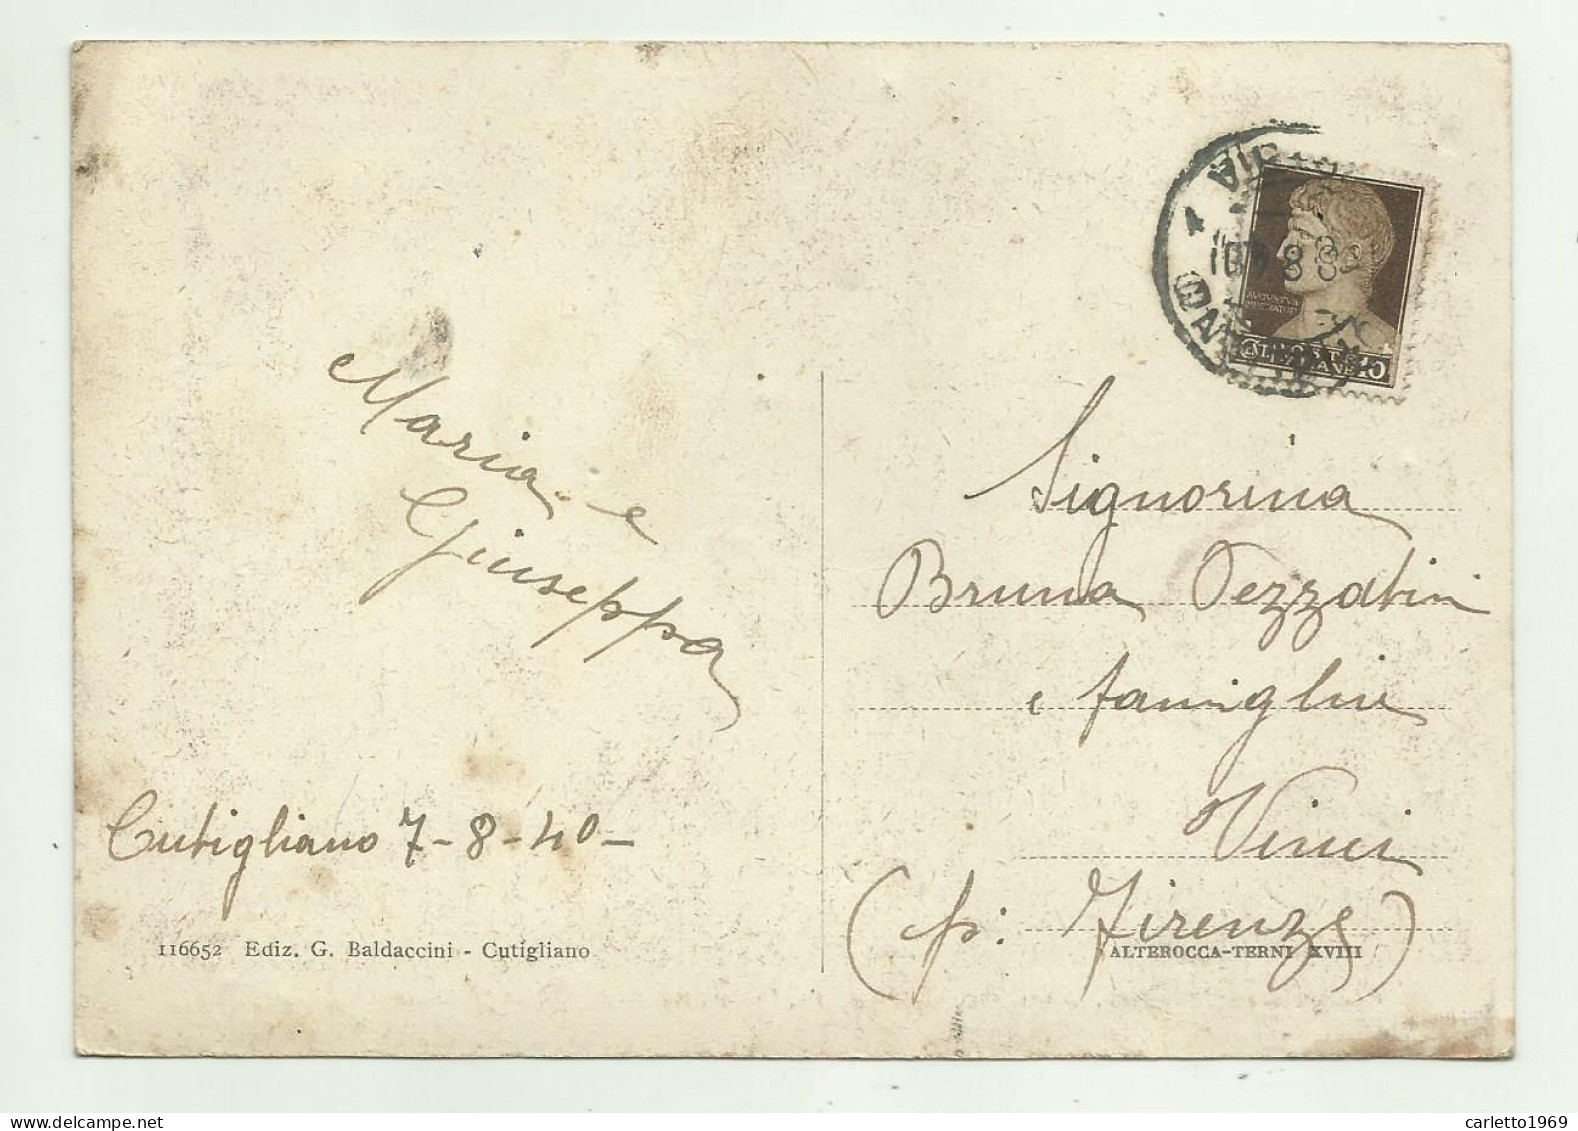 Maria e
Giuseppa
Cutigliano 7-8-40-
116652 Ediz. G. Baldaccini - Cutigliano
AVGVSTVS
IMPERATOR
POSTE
ITALIANE
Signorina
Bruna Pezzatini
e famiglia
Vinci
(p: Firenze)
ALTEROCCA-TERNI XVIII
carletto1969